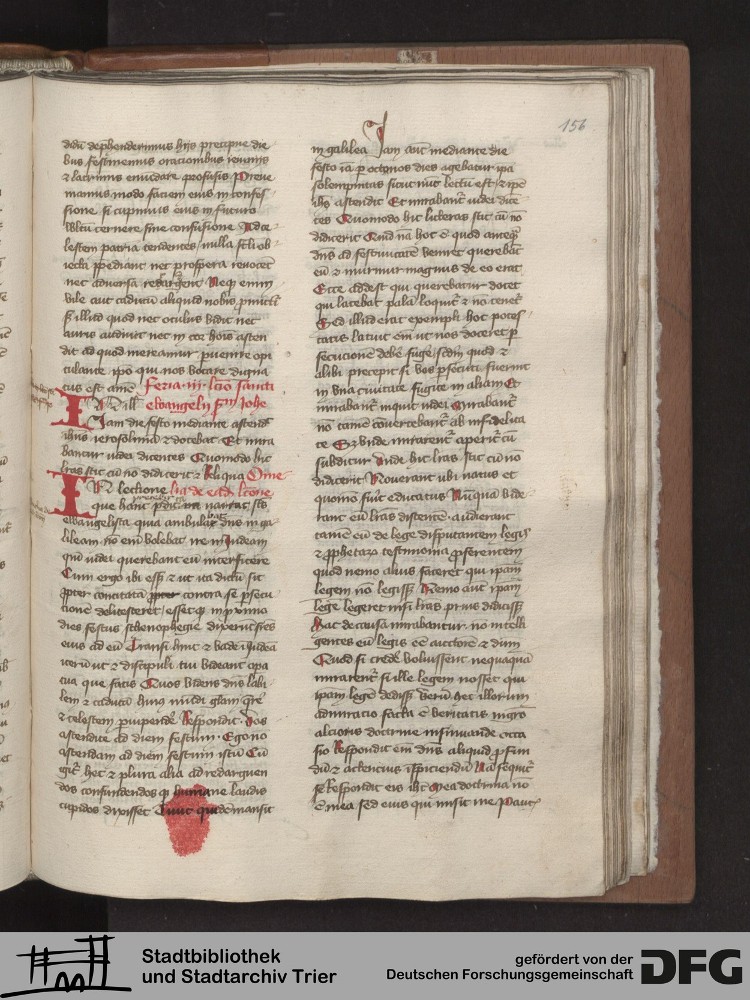 156
didicit dephenderimus hijs precipue die
bus festinemus oracionibus ieiunijs
& lacrimis emundare profusis Preue
niamus modo faciem eius in confes
sione si cupimus eius in futuro
vultum cernere sine confusione Ad ce
lestem patriam tendentes nulla seculi ob
iecta impediant nec prospera reuocent
nec aduersa Neque enim
vile aut caducum aliquid nobis promittitur
sed illud quod nec oculus vidit nec
auris audiuit nec in cor hominis ascen
dit ad quod mereamur peruenire opi
tulante ipso qui nos vocare digna
tus est amen Feria iii lectio sancti
In ill ewangelij secundum Johannem
Jam die festo mediante ascendit
ihesus ierosolimam & docebat Et mira
bantur iudei dicentes Quomodo hic
litteras scit cum non didicerit & Reliqua Ome
lectione lia de eadem lectione
que hanc narrat sanctus
ewangelista quia ambulabat dominus in ga
lileam non enim volebat ire in Judeam
quia iudei querebant eum interficere
Cum ergo ibi esset & ut ita dictum sit
propter concitatam contra se persecu
cionem delitesceret essetque in proximo
dies festus scenophegie dixerunt fratres
eius ad eum Transi hinc & vade in Judeam
iterum ut & discipuli tui videant opera
tua que facis Quos videns dominus labi
lem & caducam huius mundi gloriam querere
& celestem paruipendere Respondit Vos
ascendite ad diem festum Ego non
ascendam ad diem festum istum Cum
igitur hec & plura alia ad redarguen
dos confundendosque humane laudis
cupidos dixisset mansit
in galilea Jam autem mediante die
festo id est per octonos dies agebatur ipsa
solempnitas sicut nunc lectum est & ipse
ihesus ascendit Et mirabantur iudei dicen
tes Quomodo hic litteras scit cum non
didicerit Quid nam hoc est quod antequam
dominus ad festiuitatem veniret querebant
eum & murmur magnus de eo erat
Ecce adest qui querebatur docet
qui latebat palam loquitur & non tenetur
Sed illud erat exempli hoc potes
tatis latuit enim ut nos doceret per
secucionem debere fugere secundum quod &
alibi precepit si vos persecuti fuerint
in vna ciuitate fugite in aliam Et
mirabantur inquit iudei Mirabantur
non tamen conuertebantur ab infidelita
te Et vnde mirarentur aperitur cum
subditur Vnde hic litteras scit cum non
didicerit Nouerant vbi natus et
quomodo fuerit educatus Nunquam vide
rant eum litteras discentem audierant
tamen eum de lege disputantem legis
& prophetarum testimonia proferentem
quod nemo alius faceret qui ipsam
legem non legisset Nemo autem ipsam
legem legeret nisi litteras prius didicisset
Hac de causa mirabantur non intelli
gentes eum legis esse auctorem & dominum
Quod si credere voluissent nequaquam
mirarentur si ille legem nosset qui
ipsam legem dedisset Verum hec illorum
admiracio facta est veritatis magistro
alcioris doctrine insinuande occa
sio Respondit enim dominus aliquid profun
dum & attencius inspiciendum Nam sequitur
Respondit eis ihesus Mea doctrina non
est mea sed eius qui misit me Pauca
Stadtbibliothek
und Stadtarchiv Trier
gefördert von der
Deutschen Forschungsgemeinschaft
DFG